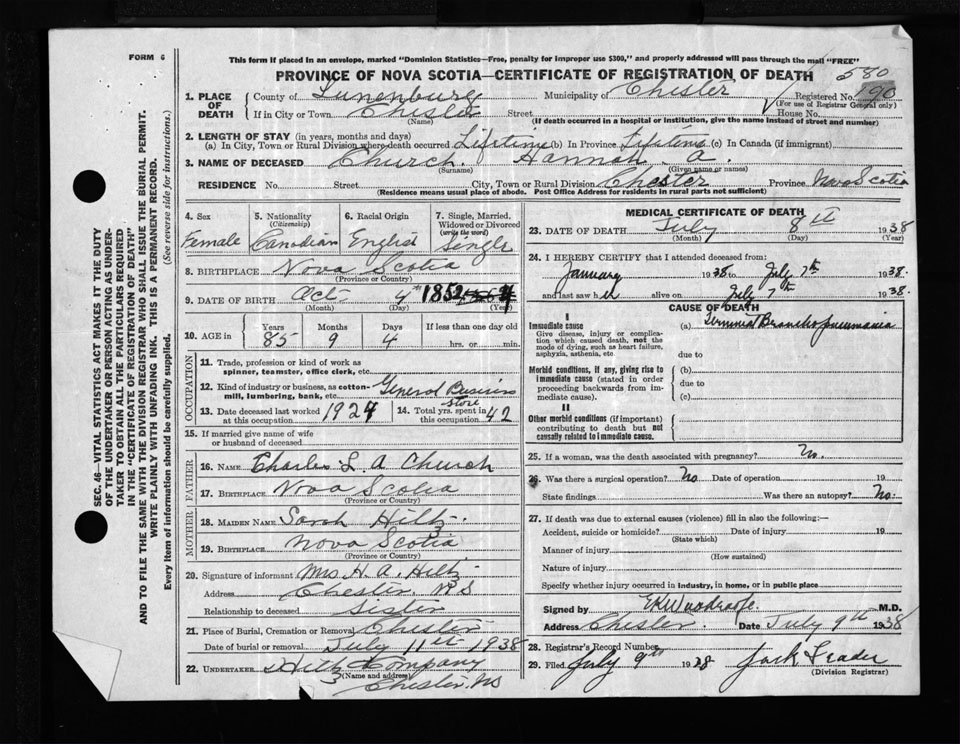 FORM 6
This form if placed in an envelope, marked "Dominion Statistics—Free, penalty for improper use $300," and properly addressed will pass through the mail "FREE"
PROVINCE OF NOVA SCOTIA—CERTIFICATE OF REGISTRATION OF DEATH 580
1. PLACE OF DEATH
County of Lunenburg Municipality of Chester Registered No. 190
(For use of Registrar General only)
If in City or Town Chester Street House No.
(Name) (If death occurred in a hospital or institution, give the name instead of street and number)
2. LENGTH OF STAY (in years, months and days)
(a) In City, Town or Rural Division where death occurred Lifetime (b) In Province Lifetime (c) In Canada (if immigrant)
3. NAME OF DECEASED Church. Hannah A.
(Surname) (Given name or names)
RESIDENCE No. Street City, Town or Rural Division Chester Province Nova Scotia
(Residence means usual place of abode. Post Office Address for residents in rural parts not sufficient)
4. Sex Female
5. Nationality (Citizenship) Canadian
6. Racial Origin English
7. Single, Married, Widowed or Divorced (write the word) Single
8. BIRTHPLACE Nova Scotia
(Province or Country)
9. DATE OF BIRTH Oct. 4th 1852
(Month) (Day) (Year)
10. AGE in Years 85 Months 9 Days 4 If less than one day old hrs. or min.
OCCUPATION
11. Trade, profession or kind of work as spinner, teamster, office clerk, etc.
12. Kind of industry or business, as cotton-mill, lumbering, bank, etc. General Business store
13. Date deceased last worked at this occupation 1924
14. Total yrs. spent in this occupation 42
15. If married give name of wife or husband of deceased
FATHER
16. NAME Charles L. A Church
17. BIRTHPLACE Nova Scotia
(Province or Country)
MOTHER
18. MAIDEN NAME Sarah Hiltz.
19. BIRTHPLACE Nova Scotia
(Province or Country)
20. Signature of informant Mrs H. A. Hiltz
Address Chester. N S
Relationship to deceased Sister
21. Place of Burial, Cremation or Removal Chester
Date of burial or removal July 11th 1938
22. UNDERTAKER Hiltz Company
(Name and address)
Chester. NS
MEDICAL CERTIFICATE OF DEATH
23. DATE OF DEATH July 8th 1938
(Month) (Day) (Year)
24. I HEREBY CERTIFY that I attended deceased from:
January 1938 to July 7th 1938.
and last saw her alive on July 7th 1938.
CAUSE OF DEATH
I
Immediate cause (a) Terminal Bronchopneumonia
Give disease, injury or complication which caused death, not the mode of dying, such as heart failure, asphyxia, asthenia, etc
due to
Morbid conditions, if any, giving rise to immediate cause (stated in order proceeding backwards from immediate cause).
(b)
due to
(c)
II
Other morbid conditions (if important) contributing to death but not causally related to immediate cause.
25. If a woman, was the death associated with pregnancy? No.
26. Was there a surgical operation? No Date of operation 19
State findings Was there an autopsy? No.
27. If death was due to external causes (violence) fill in also the following:—
Accident, suicide or homicide? Date of injury 19
(State which)
Manner of injury
(How sustained)
Nature of injury
Specify whether injury occurred in industry, in home, or in public place
Signed by M.D.
Address Chester. Date July 9th 1938
28. Registrar's Record Number
29. Filed July 9th 1938 Jack Leader
(Division Registrar)
SEC. 46—VITAL STATISTICS ACT MAKES IT THE DUTY
OF THE UNDERTAKER OR PERSON ACTING AS UNDER-
TAKER TO OBTAIN ALL THE PARTICULARS REQUIRED
IN THE "CERTIFICATE OF REGISTRATION OF DEATH"
AND TO FILE THE SAME WITH THE DIVISION REGISTRAR WHO SHALL ISSUE THE BURIAL PERMIT.
WRITE PLAINLY WITH UNFADING INK. THIS IS A PERMANENT RECORD.
Every item of information should be carefully supplied. (See reverse side for instructions.)